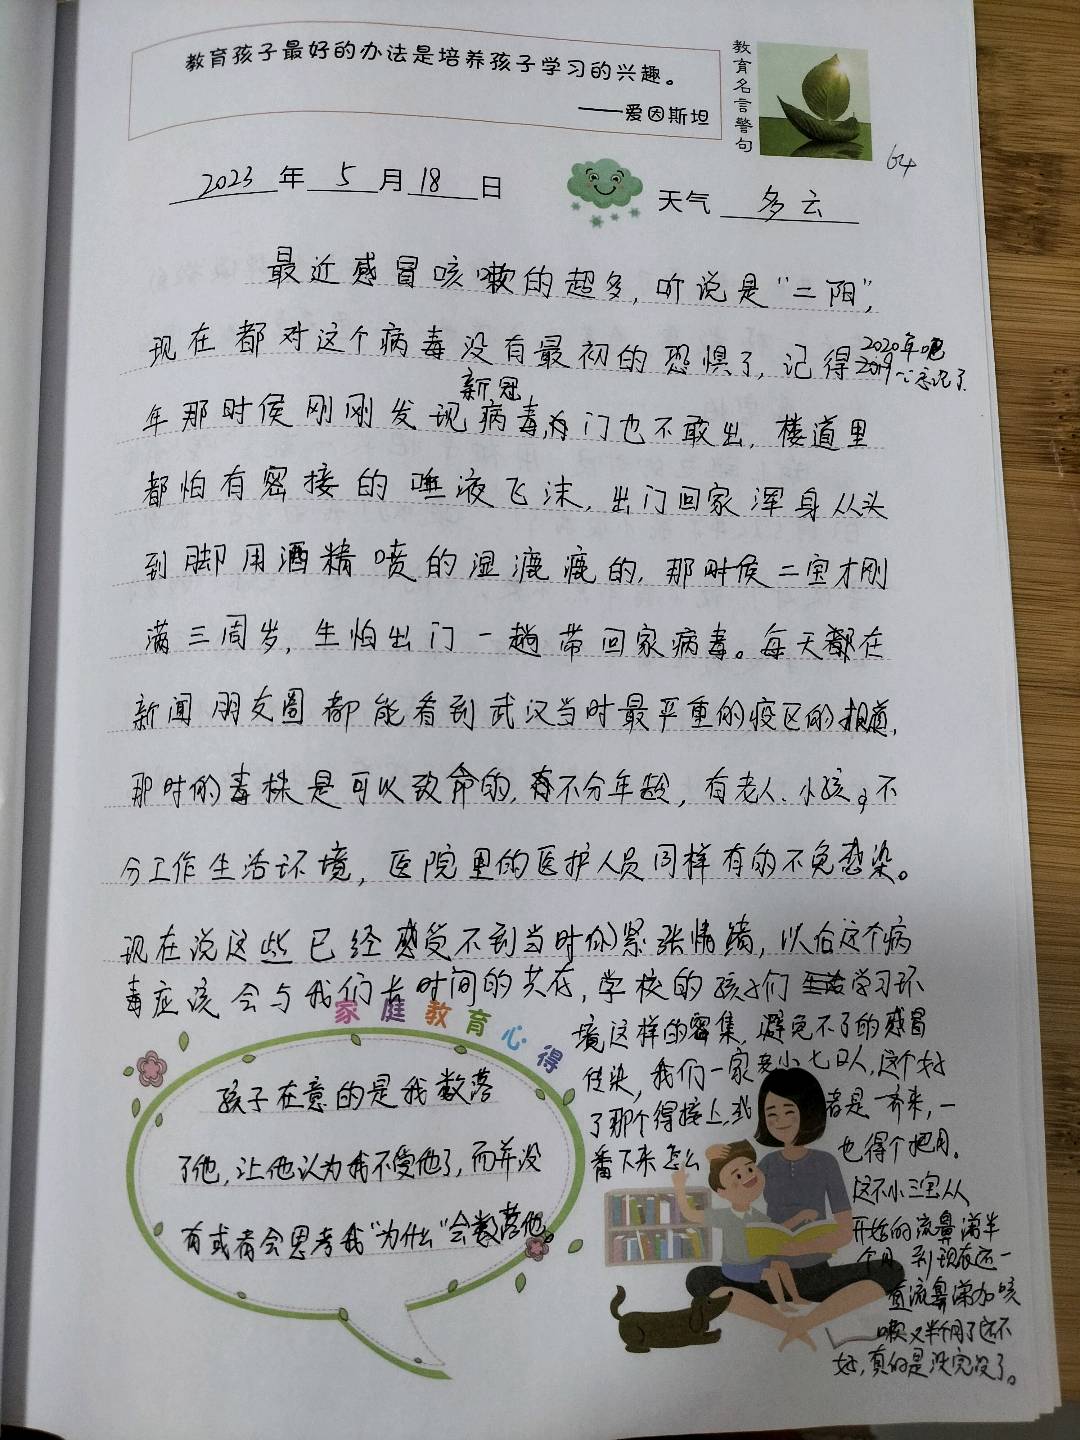 教育孩子最好的办法是培养孩子学习的兴趣。
——爱因斯坦
教育名言警句
64
2023年5月18日
天气 多云
最近感冒咳嗽的超多,听说是"二阳",
现在都对这个病毒没有最初的恐惧了,记得2019
2020年吧
忘记了
年那时侯刚刚发现新冠病毒,门也不敢出,楼道里
都怕有密接的唾液飞沫,出门回家浑身从头
到脚用酒精喷的湿漉漉的,那时候二宝才刚
满三周岁,生怕出门一趟带回家病毒。每天都在
新闻朋友圈都能看到武汉当时最严重的疫区的报道,
那时的毒株是可以致命的,不分年龄,有老人、小孩,不
分工作生活环境,医院里的医护人员同样有的不免感染。
现在说这些已经感觉不到当时的紧张情绪,以后这个病
毒应该会与我们长时间的共存,学校的孩子们学习环
境这样的密集,避免不了的感冒
传染,我们一家老小七口人,这个好
了那个得接上,或者是一齐来,一
番下来怎么也得个把月。
这不小三宝从
开始的流鼻涕半
个月,到现在还一
直流鼻涕加咳
嗽又半个月了还不
好,真的是没完没了。
家庭教育心得
孩子在意的是我数落
了他,让他认为我不爱他了,而并没
有或者会思考我"为什么"会数落他。